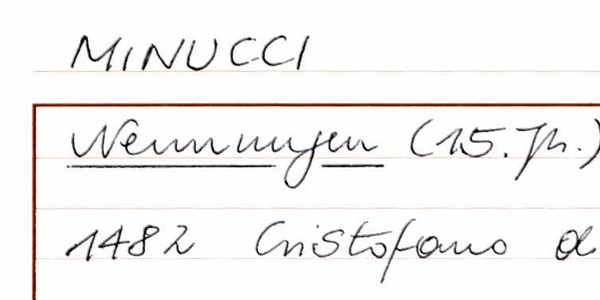 MINUCCI
Nennungen (15. Jh.)
1482 Cristofano d